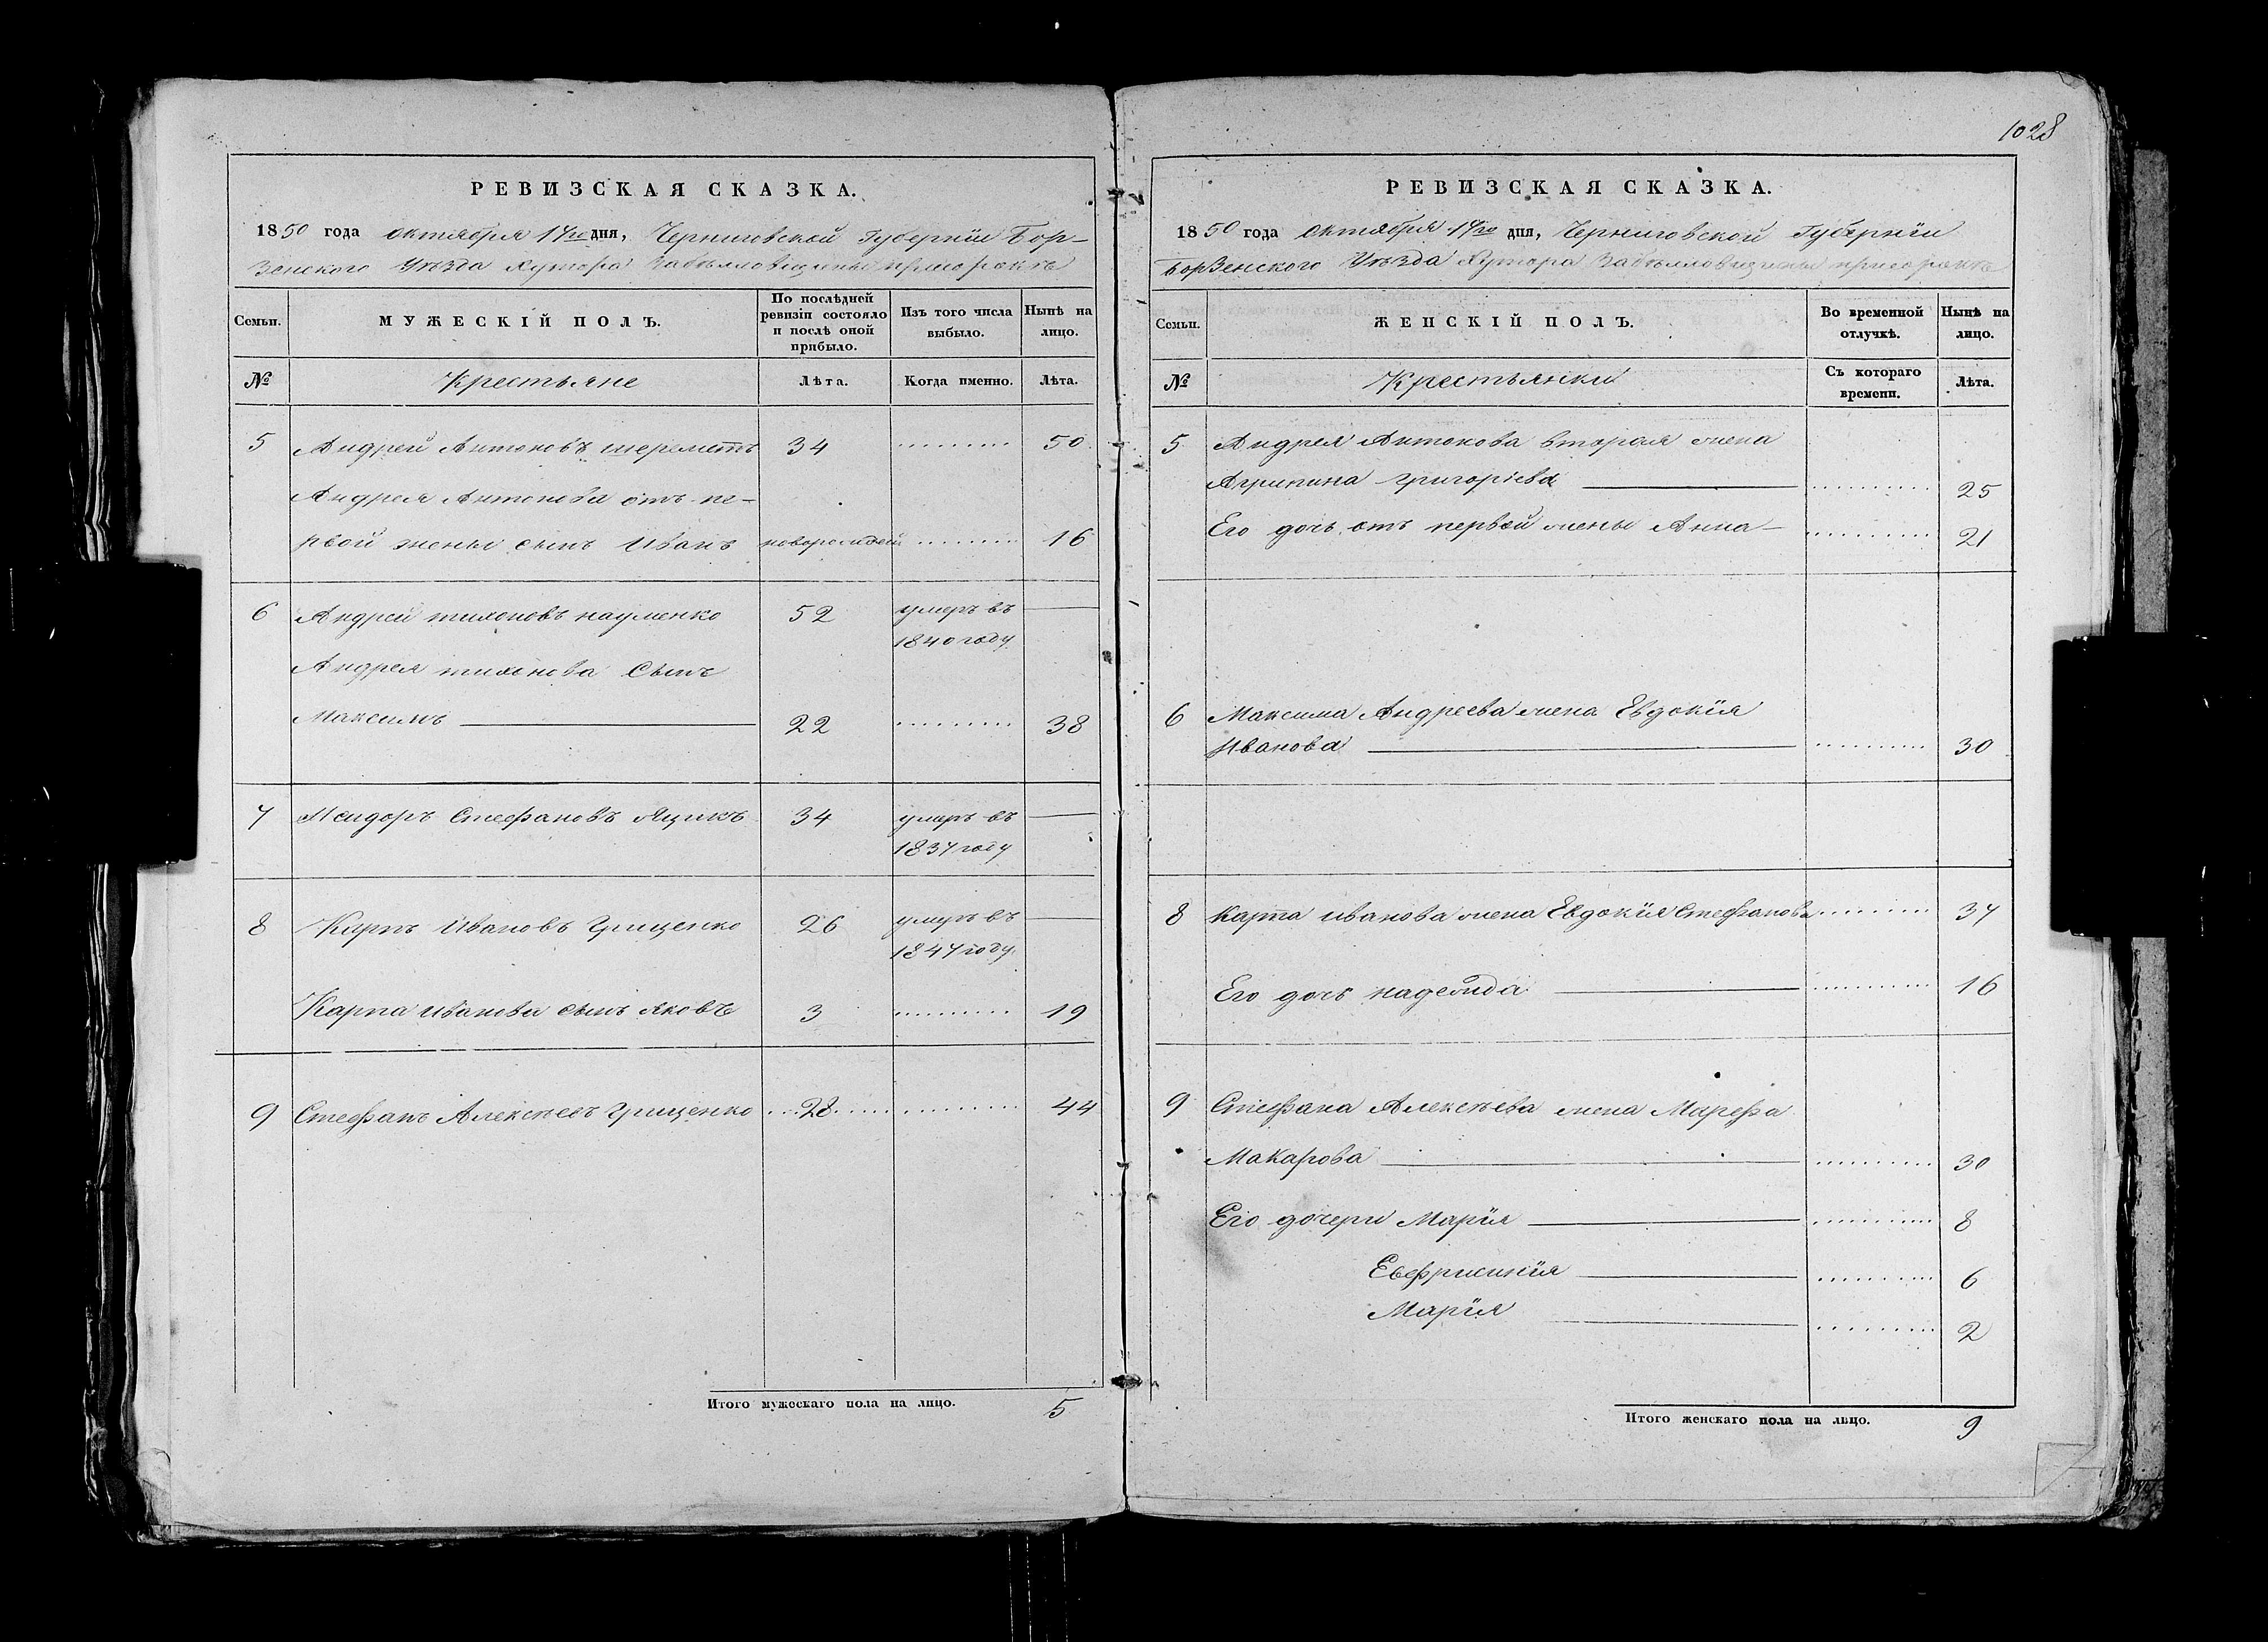 1028
РЕВИЗСКАЯ СКАЗКА.
1850 года октября 17го дня, Черниговской Губерніи Бор-
зенского Уѣзда Хутора
Семьи.
МУЖЕСКІЙ ПОЛЪ.
По послѣдней ревизіи состояло и послѣ оной прибыло.
Изъ того числа выбыло.
Нынѣ на лицо.
№ Крестьяне Лѣта. Когда именно. Лѣта.
5 Андрей Антоновъ шереметъ 34 .......... 50
Андрея Антонова отъ пе-
рвой жены сынъ Иванъ новорожден .......... 16
6 Андрей тихоновъ науменко 52 умеръ въ
1840 году.
Андрея тихонова Сынъ
Максимъ 22 .......... 38
7 Исидоръ Стефановъ Яцикъ 34 умеръ въ
1837 году
8 Карпъ Ивановъ Грищенко 26 умеръ въ
1847 году.
Карпа иванова сынъ яковъ 3 .......... 19
9 Стефанъ Алексѣевъ Грищенко 28 .......... 44
Итого мужескаго пола на лицо. 5
РЕВИЗСКАЯ СКАЗКА.
1850 года октября 17го дня, Черниговской Губерніи
Борзенского Уѣзда Хутора
Семьи.
ЖЕНСКІЙ ПОЛЪ.
Во временной отлучкѣ.
Нынѣ на лицо.
№ Крестьянки Съ котораго времени. Лѣта.
5 Андрея Антонова вторая жена
Агрипина григоріева .......... 25
Его дочь отъ первой жены Анна .......... 21
6 Максима Андреева жена Евдокія
Иванова .......... 30
8 Карпа иванова жена Евдокія Стефанова .......... 37
Его дочь надежда .......... 16
9 Стефана Алексѣева жена Марефа
Макарова .......... 30
Его дочери Марія .......... 8
Евфросинія .......... 6
Марія .......... 2
Итого женскаго пола на лицо. 9